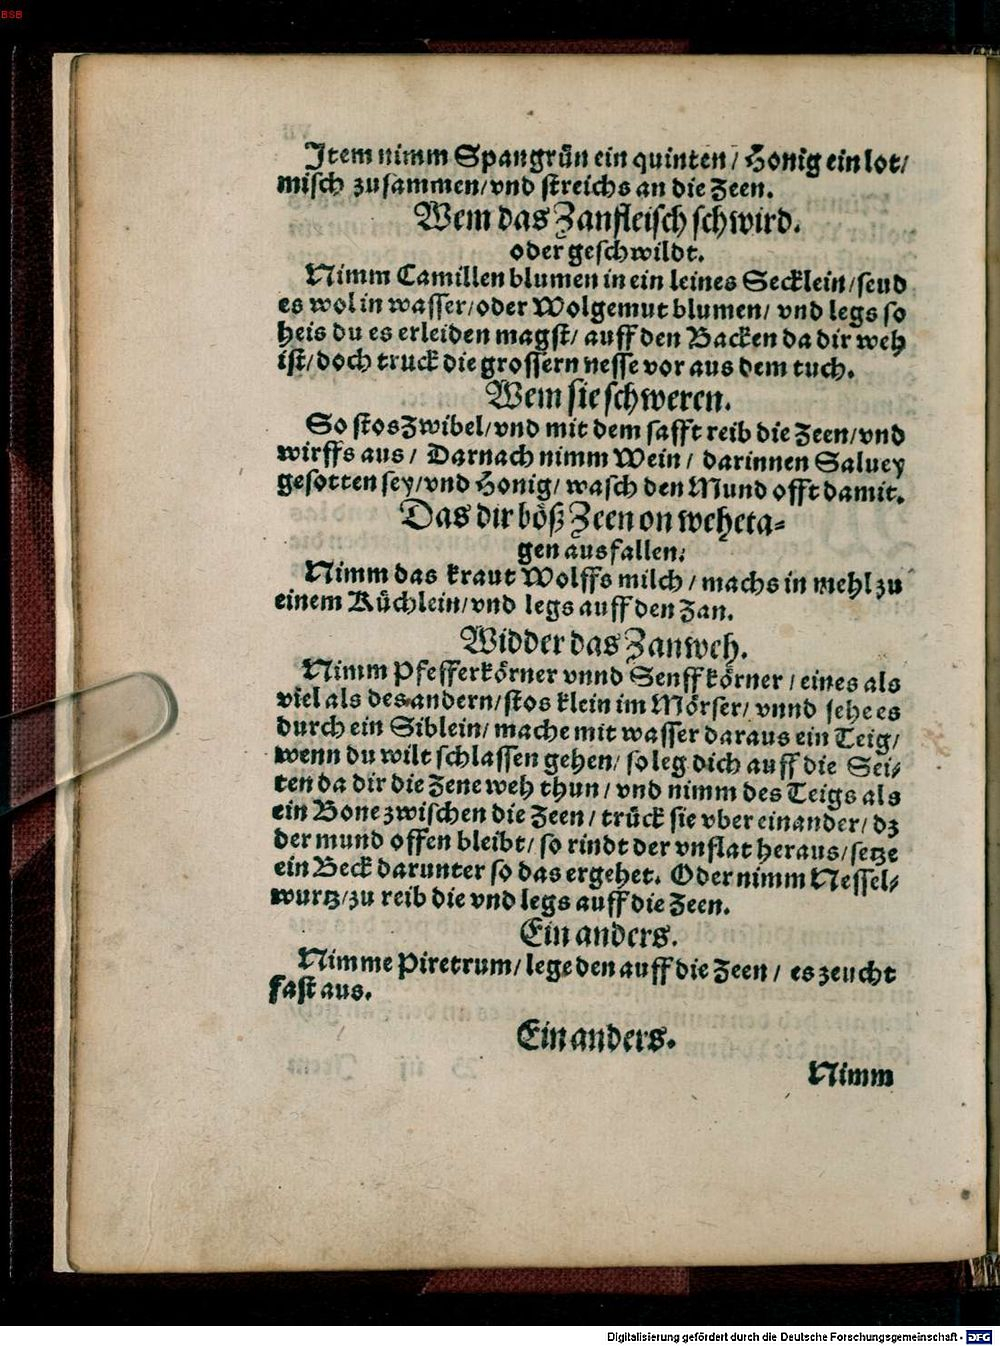 BSB
Item nimm Spangrün ein quinten / Honig ein lot /
misch zusammen / vnd streichs an die Zeen.
Wem das Zanfleisch schwird.
oder geschwildt.
Nimm Camillen blumen in ein leines Secklein / seud
es wol in wasser / oder Wolgemut blumen / vnd legs so
heis du es erleiden magst / auff den Backen da dir weh
ist / doch truck die grossern nesse vor aus dem tuch.
Wem sie schweren.
So stos Zwibel / vnd mit dem safft reib die Zeen / vnd
wirffs aus / Darnach nimm Wein / darinnen Saluey
gesotten sey / vnd Honig / wasch den Mund offt damit.
Das dir böß Zeen on weheta-
gen ausfallen.
Nimm das kraut Wolffs milch / machs in mehl zu
einem Küchlein / vnd legs auff den Zan.
Widder das Zanweh.
Nimm Pfefferkörner vnnd Senffkörner / eines als
viel als des andern / stos klein im Mörser / vnnd sehe es
durch ein Siblein / mache mit wasser daraus ein Teig /
wenn du wilt schlaffen gehen / so leg dich auff die Sei-
ten da dir die Zene weh thun / vnd nimm des Teigs als
ein Bone zwischen die Zeen / trück sie vber einander / dz
der mund offen bleibt / so rindt der vnflat heraus / setze
ein Beck darunter so das er gehet. Oder nimm Nessel-
wurtz / zu reib die vnd legs auff die Zeen.
Ein anders.
Nimme Piretrum / lege den auff die Zeen / es zeucht
fast aus.
Ein anders.
Nimm
Digitalisierung gefördert durch die Deutsche Forschungsgemeinschaft - DFG